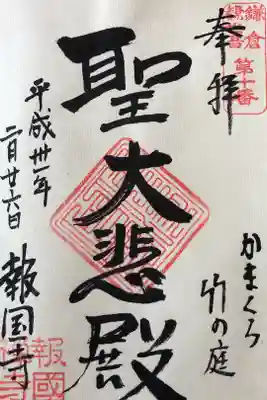 奉拝
鎌倉
観音
第十番
かまくら
竹の庭
聖大悲殿
平成卅一年
二月廿六日
報国寺
報國